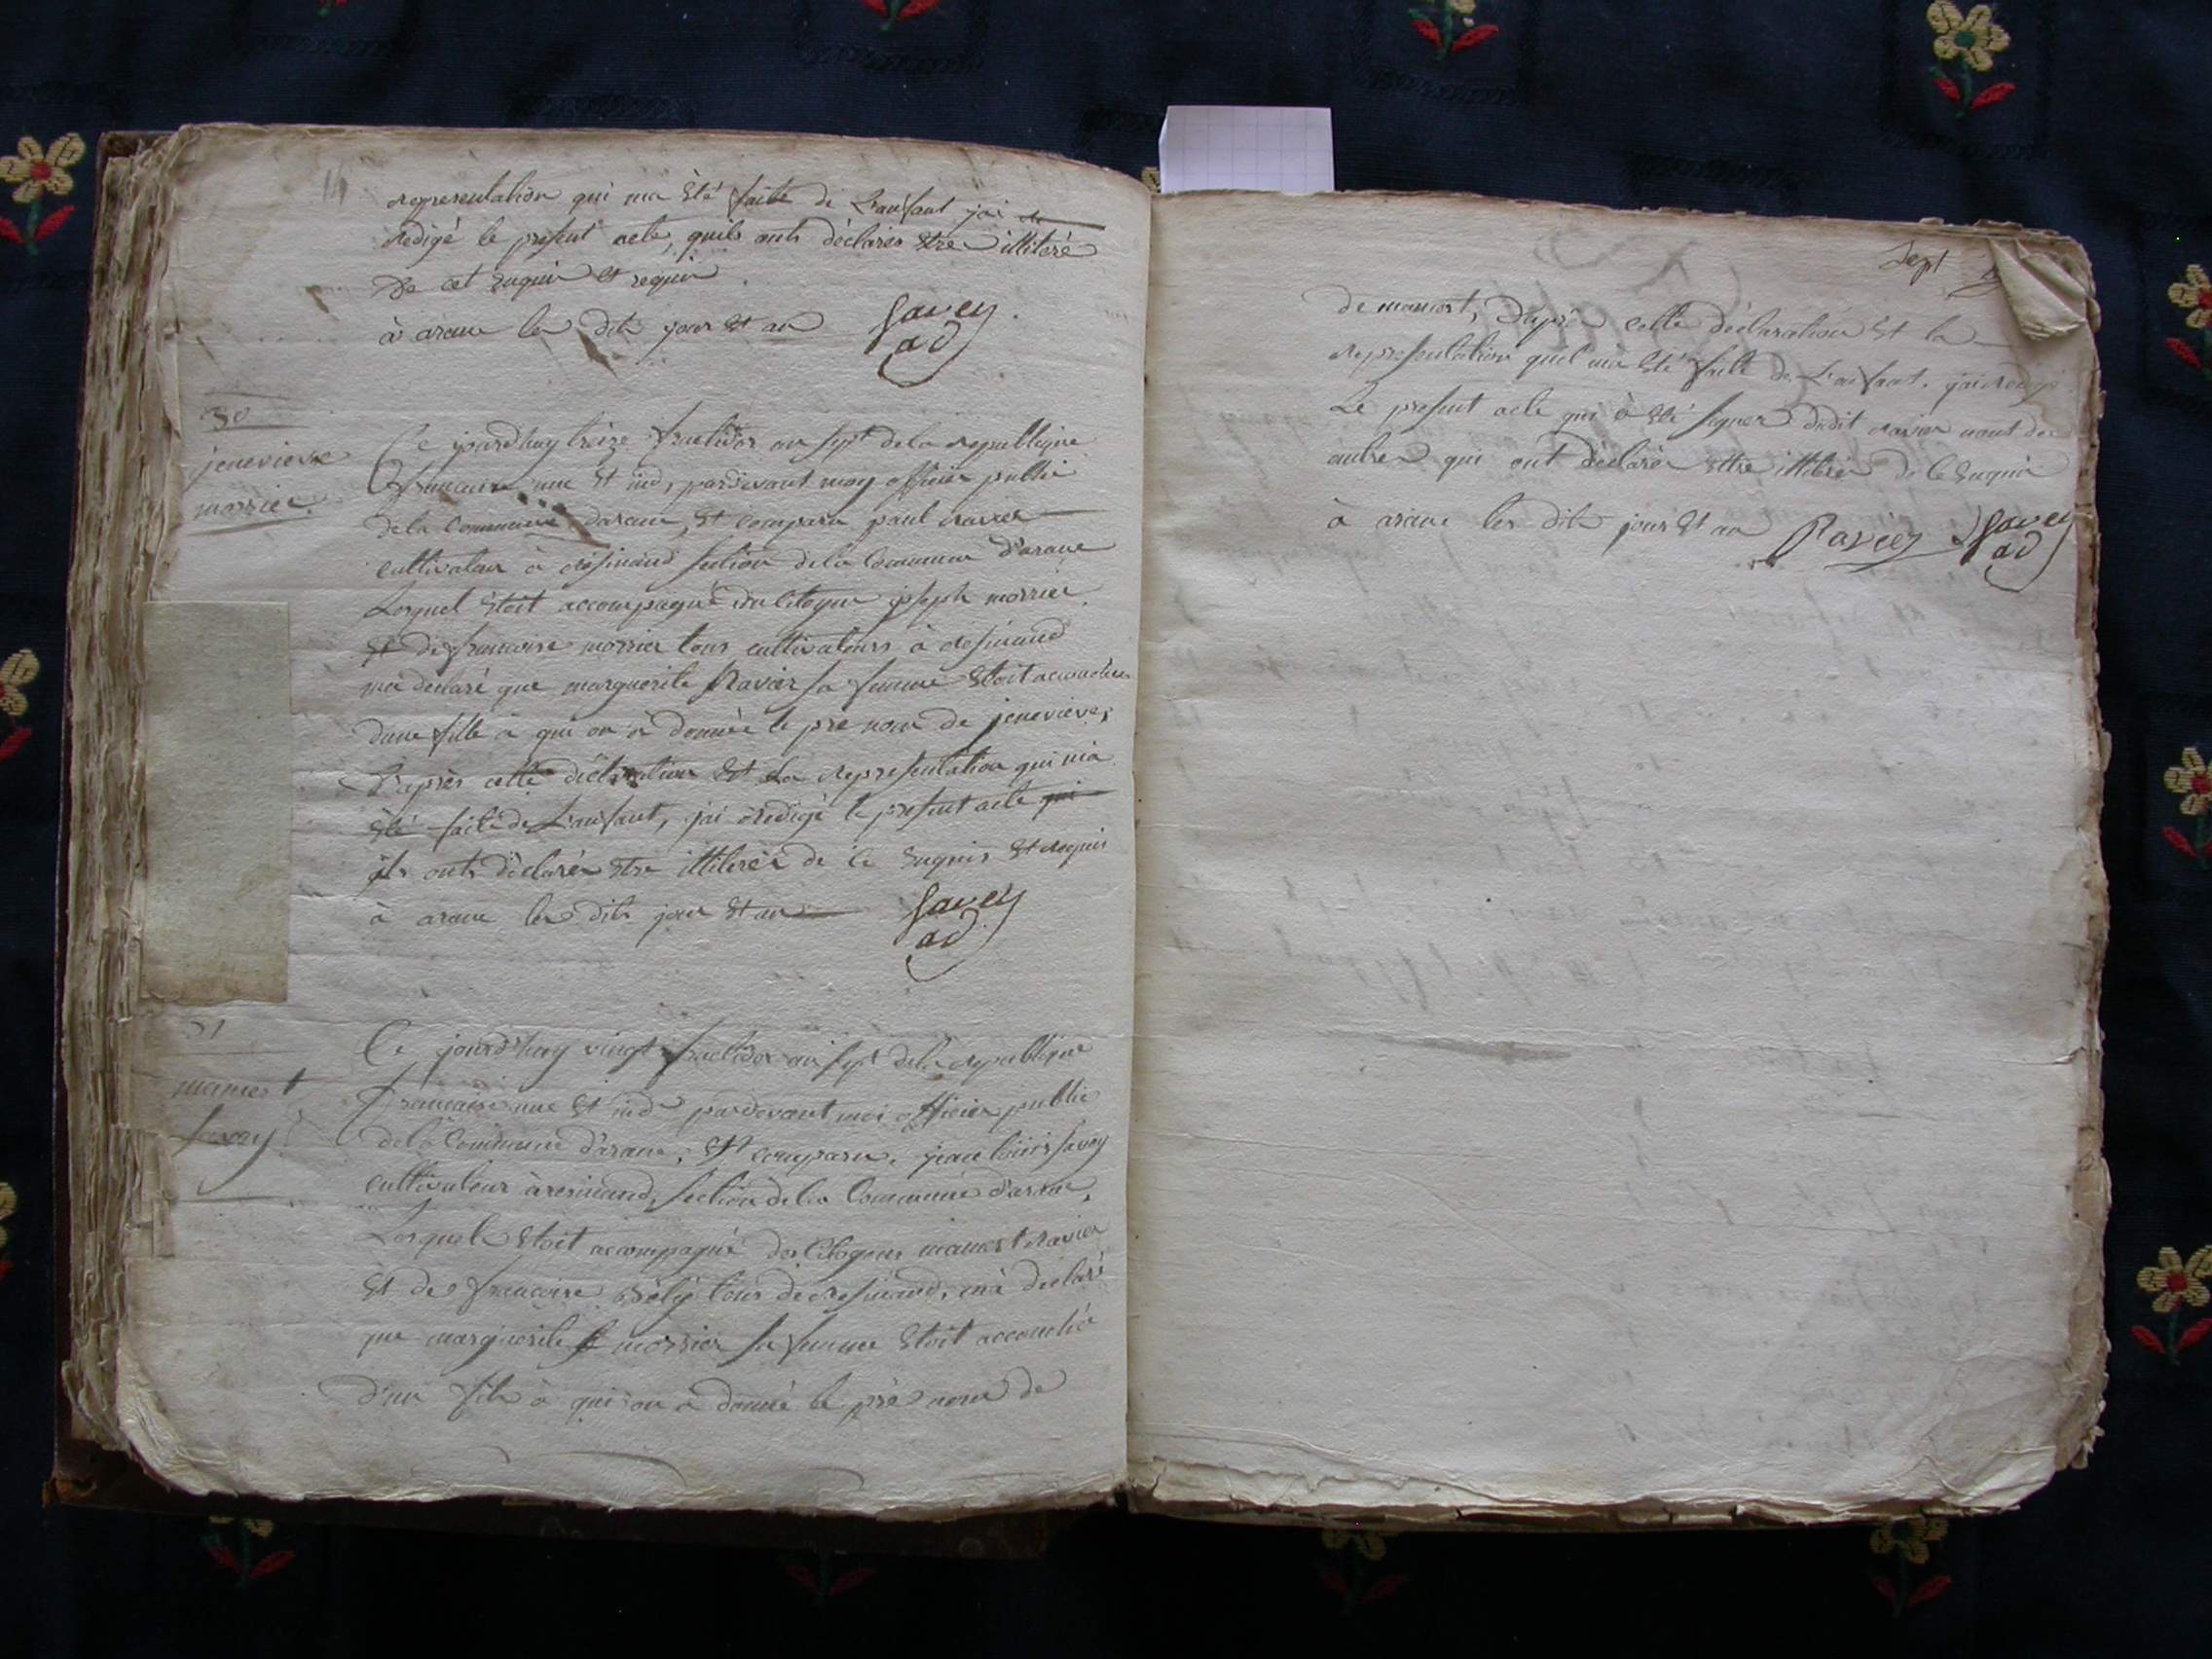 representation qui ma été faite de L'anfant jai
redigé le present acte, quils onts déclarés etre illiteré
de cet enquis et requis
à arane les dits jour et an
Savey
ad
30
jenevieve
morrier
Ce jourdhuy treize fructidor an sept de la republique
francaise une et ind, pardevant moy officier public
de la commune darane, est comparu paul ravier
cultivateur à resinand section de la commune d'arane
Lesquel etoit accompagné du citoyen joseph morrier
et de francoise morrier tous cultivateurs à resinand
ma declaré que marguerite Ravier sa femme etoit accouchée
dune fille à qui on à donnée le pre nom de jenevieve,
D'après cette déclaration et La representation qui m'a
été faite de L'anfant, jai redigé le present acte qui
ils onts déclarés etre illiterés de ce enquis et requis
à arane les dits jour et an
Savey
ad
31
mamert
savey
Ce jourd'huy vingt fructidor an sept de la republique
francaise une et ind pardevant moi officier public
de la Commune d'arane, est comparu, jean louis savey
cultivateur à resinand, section de la Commune d'arane,
Lesquels etoit accompagné des Citoyens mamert ravier
et de francoise tous de resinand, m'a declaré
que marguerite morrier sa femme etoit accouché
d'un fils à qui on à donné le pré nom de
Sept
de mamert, D'après cette déclaration et la
representation quel m'a eté faite de L'anfant, jai redigé
Le present acte qui à été signer dudit ravier nont des
autres qui ont déclarés ettre illiterés de ce enquis
à arane les dits jours et an
Ravier
Savey
ad